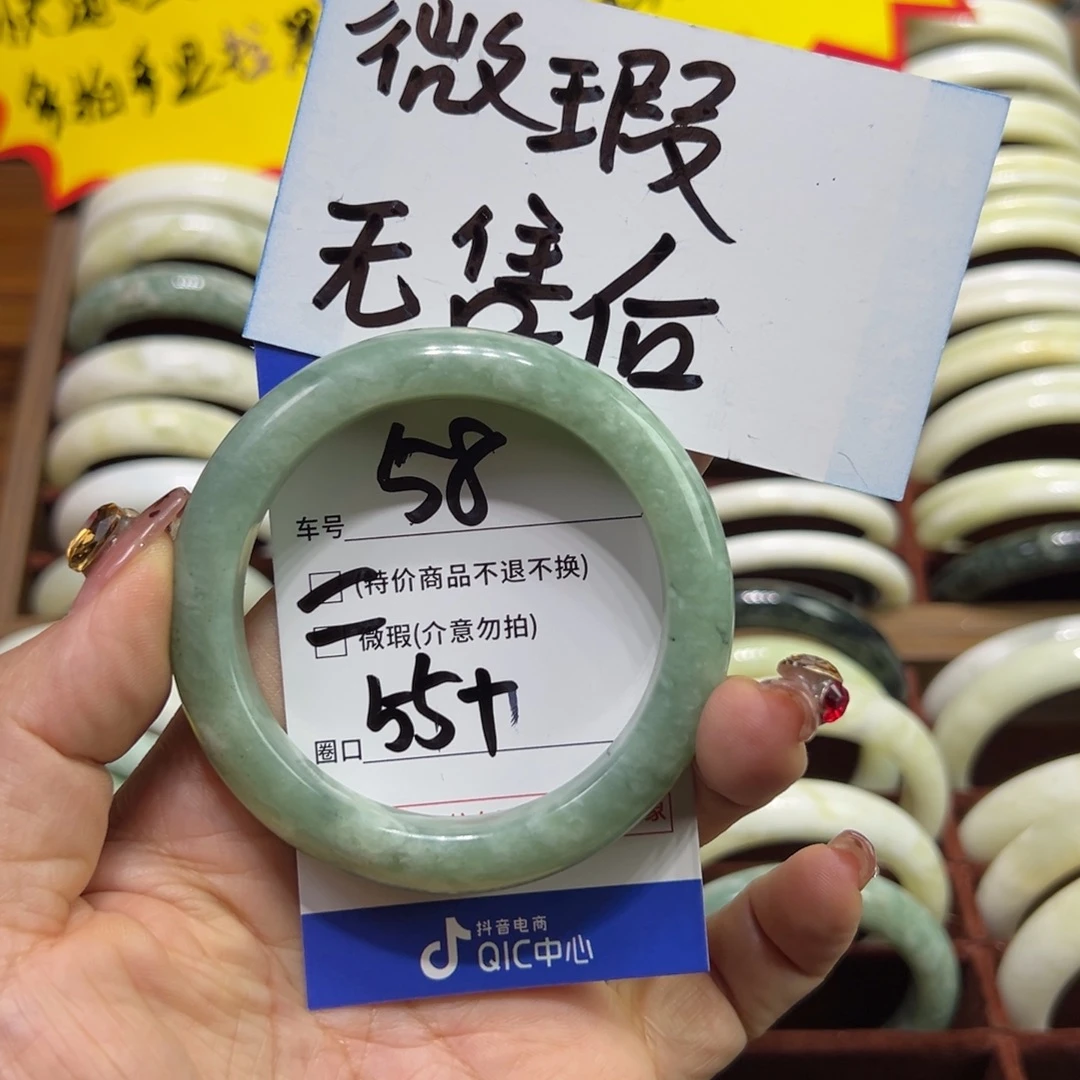 多拍多退
微瑕
无售后
58
车号
(特价商品不退不换)
微瑕(介意勿拍)
55+
圈口
抖音电商
QIC中心